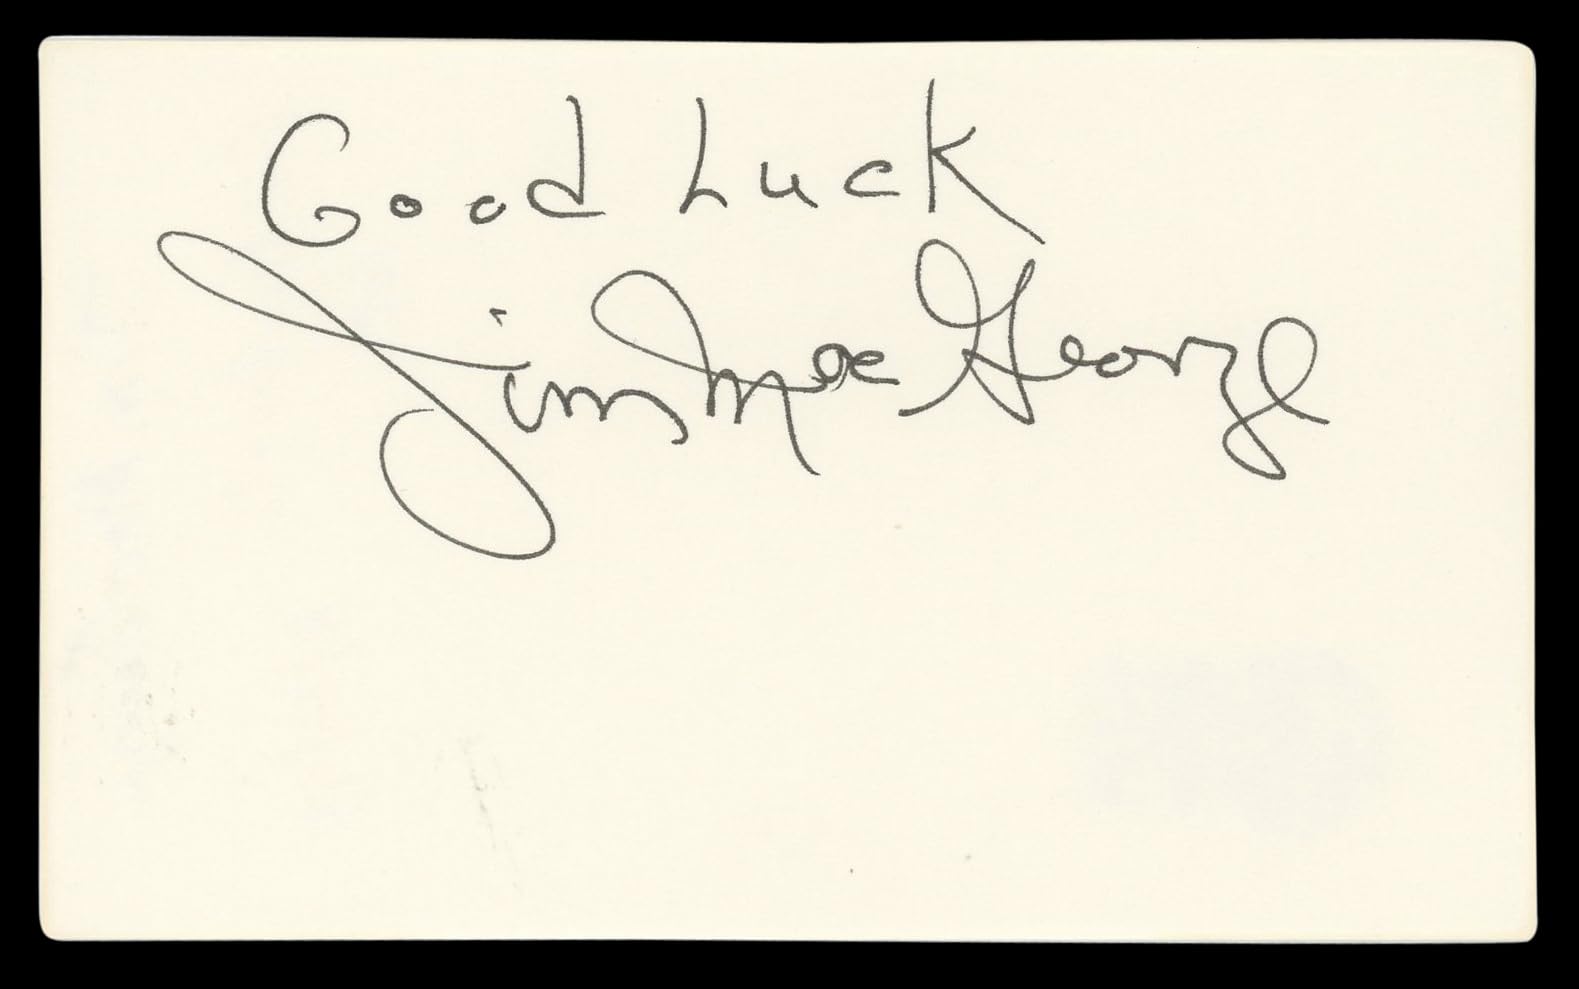 Good Luck
Jim MacGeorge